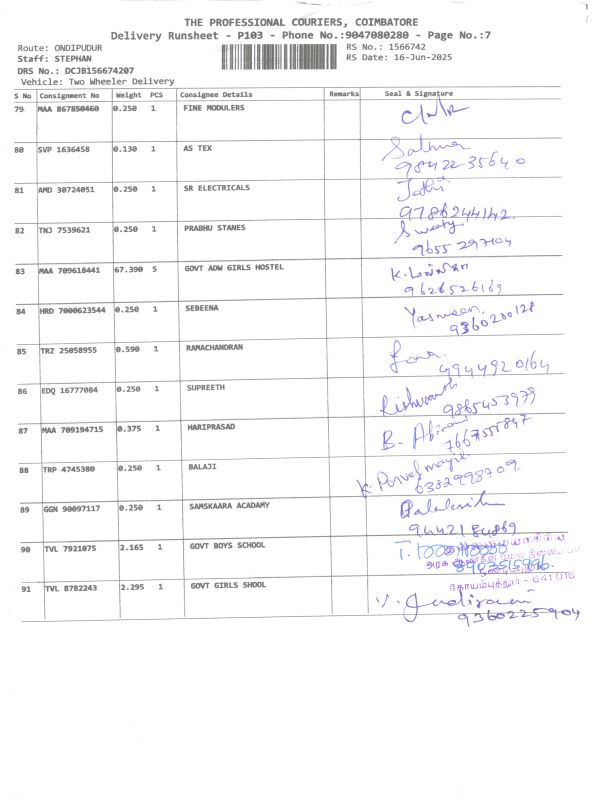 THE PROFESSIONAL COURIERS, COIMBATORE
Delivery Runsheet - P103 - Phone No.:9047080280 - Page No.:7
Route: ONDIPUDUR RS No.: 1566742
Staff: STEPHAN RS Date: 16-Jun-2025
DRS No.: DCJB156674207
Vehicle: Two Wheeler Delivery
S No Consignment No Weight PCS Consignee Details Remarks Seal & Signature
79 MAA 867850460 0.250 1 FINE MODULERS
80 SVP 1636458 0.130 1 AS TEX
9842235640
81 AMD 30724051 0.250 1 SR ELECTRICALS
9786244142.
82 TNJ 7539621 0.250 1 PRABHU STANES Sweety
9655297104
83 MAA 709618441 67.390 5 GOVT ADW GIRLS HOSTEL
9626526169
84 HRD 7000623544 0.250 1 SEBEENA Yasmeen
9360200128
85 TRZ 25058955 0.590 1 RAMACHANDRAN
4944920164
86 EDQ 16777084 0.250 1 SUPREETH
9865453979
87 MAA 709194715 0.375 1 HARIPRASAD B- Abirami
7667551847
88 TRP 4745380 0.250 1 BALAJI
6382998709.
89 GGN 90097117 0.250 1 SAMSKAARA ACADAMY
9442184869
90 TVL 7921075 2.165 1 GOVT BOYS SCHOOL
8903515996.
கோயம்புத்தூர் - 641 016
91 TVL 8782243 2.295 1 GOVT GIRLS SHOOL
9360225904